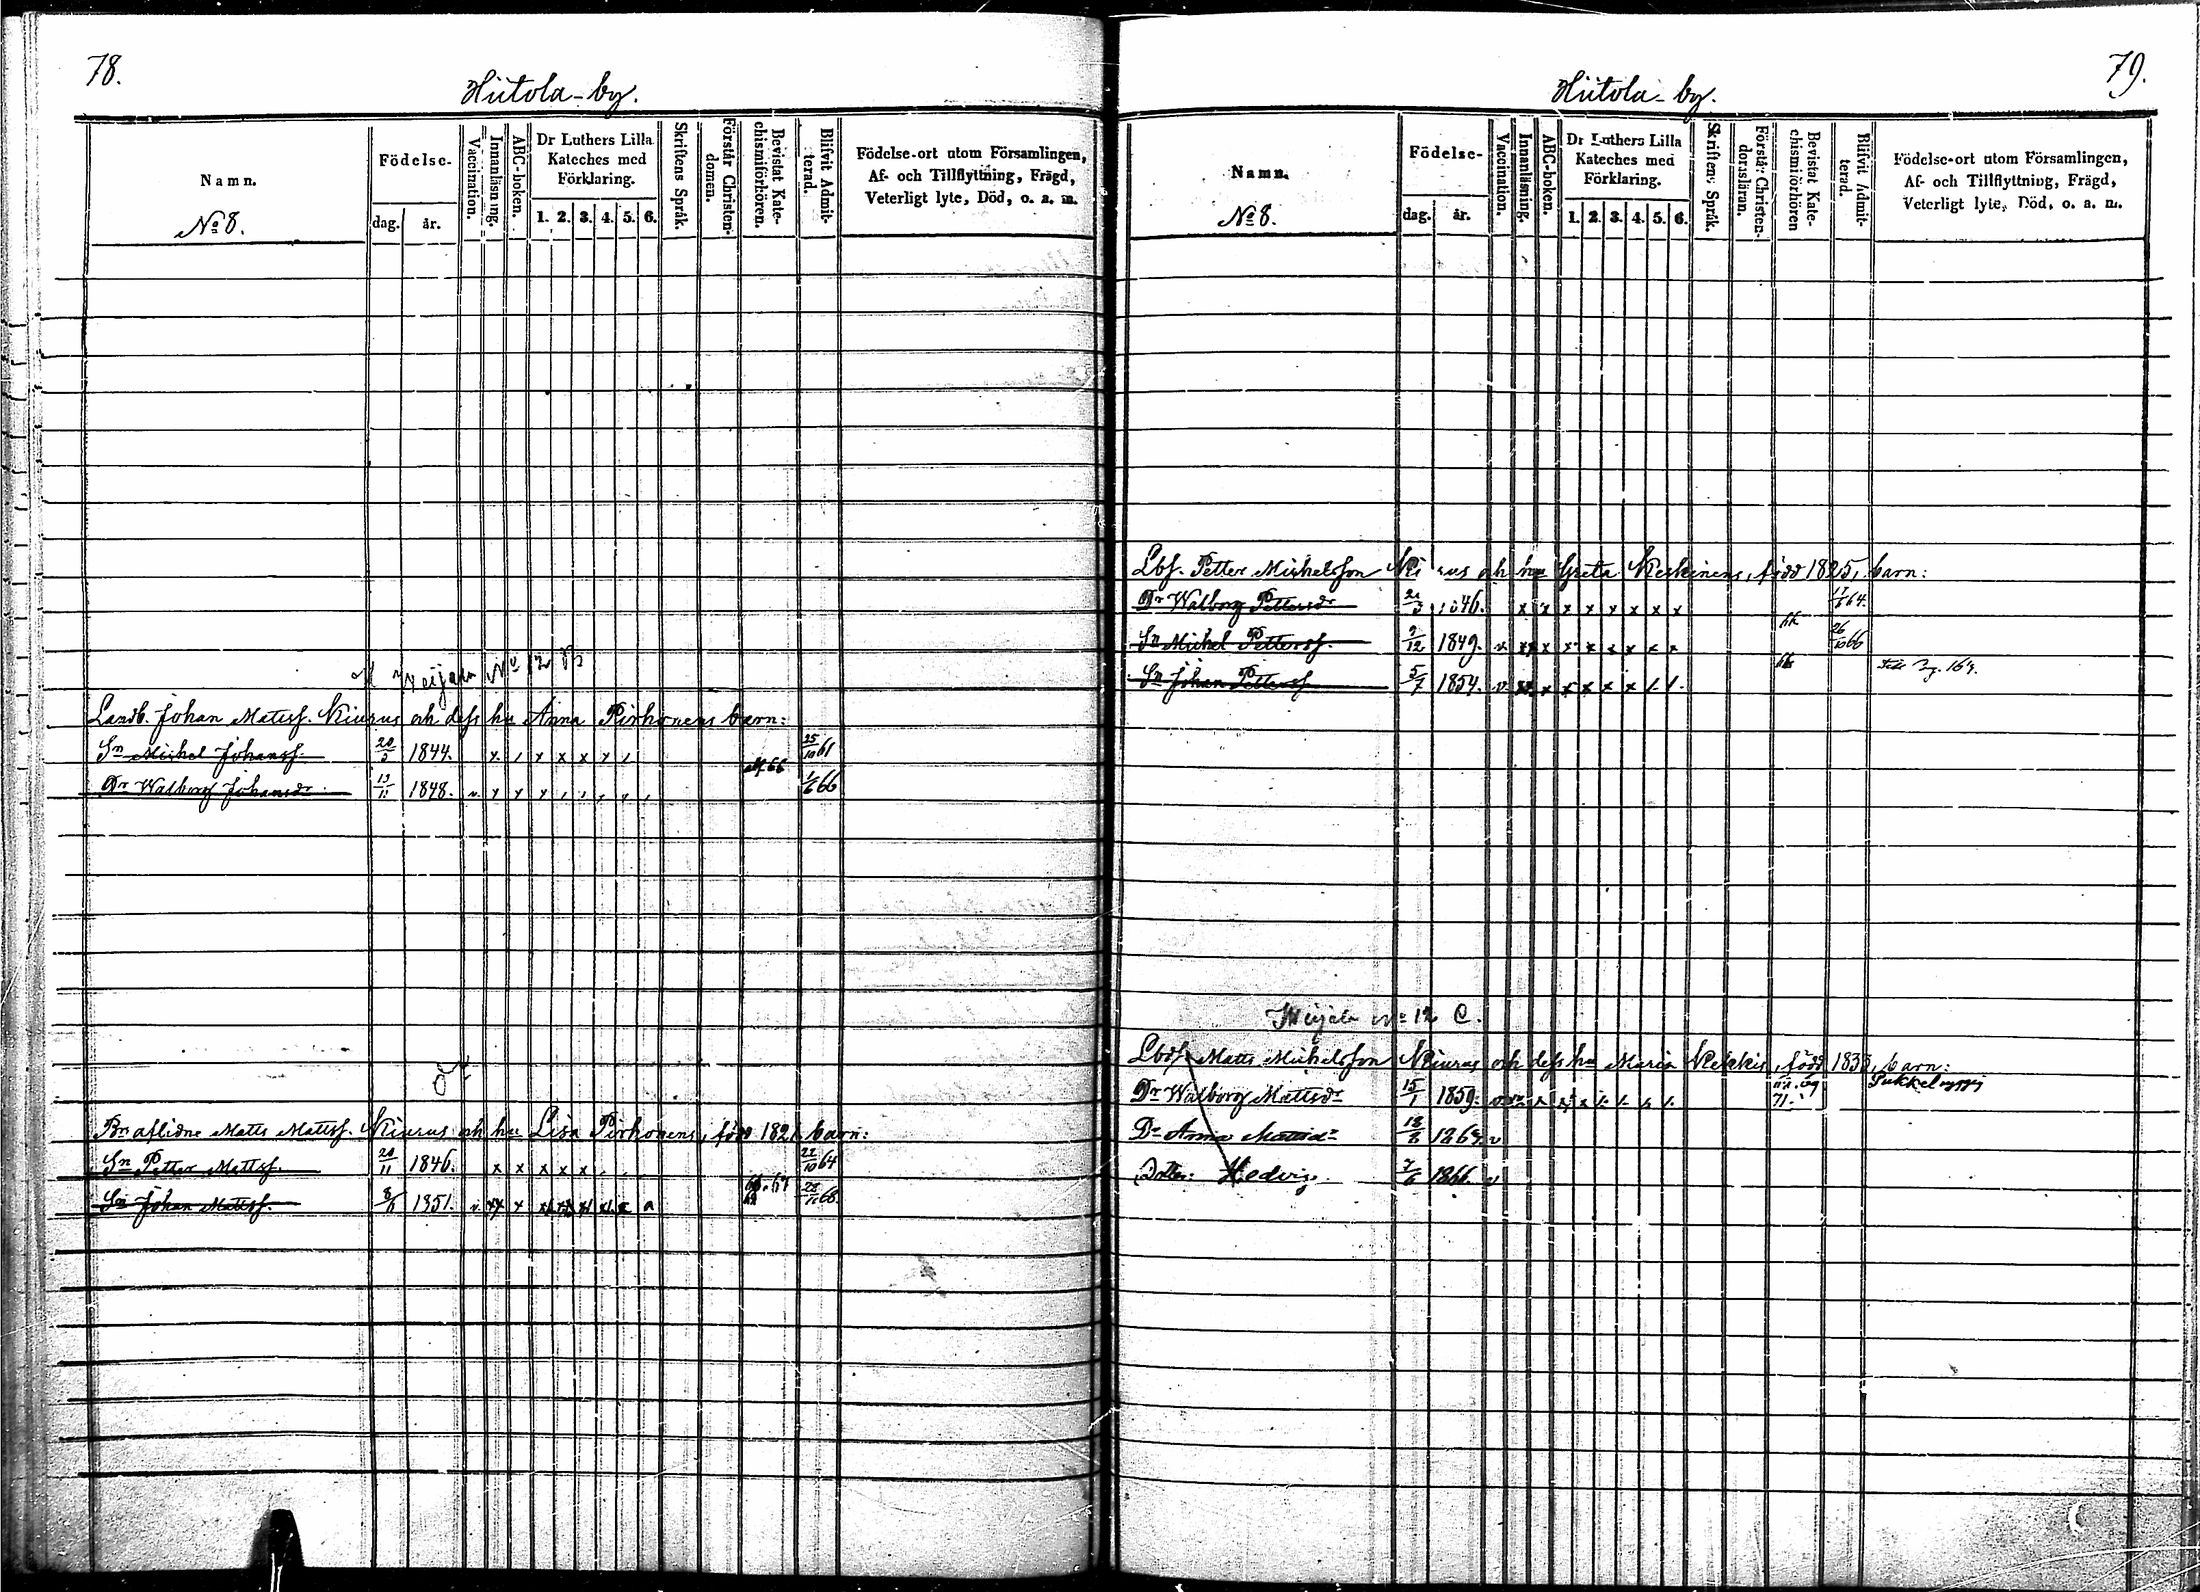 78.
Hiitola-by.
Namn.
No 8.
Födelse-
dag. år.
Vaccination.
Innanläsning.
ABC-boken.
Dr Luthers Lilla
Kateches med
Förklaring.
1. 2. 3. 4. 5. 6.
Skriftens Språk.
Förstår Christen-
domen.
Bevistat Kate-
chismiförhören.
Blifvit Admit-
terad.
Födelse-ort utom Församlingen,
Af- och Tillflyttning, Frägd,
Veterligt lyte, Död, o. a. m.
No 12 B
Landb. Johan Mattss. Kiurus och dess hu Anna Pirhonens barn:
Sn Michel Johanss. 20/3 1844. x x x x x 25/10 61
Dr Walborg Johansdr 13/11 1848. v x x x 66 1/6 66
Brs aflidne Matts Mattss. Kiurus och hu Lisa Pirhonens, född 1821 barn:
Sn Petter Mattss. 20/11 1846. x x x x x 22/10 64
Sn Johan Mattss. 8/6 1851. v xx x 68
79.
Hiitola-by.
Namn.
No 8.
Födelse-
dag. år.
Vaccination.
Innanläsning.
ABC-boken.
Dr Luthers Lilla
Kateches med
Förklaring.
1. 2. 3. 4. 5. 6.
Skriftens Språk.
Förstår Christen-
domsläran.
Bevistat Kate-
chismiförhören
Blifvit Admit-
terad.
Födelse-ort utom Församlingen,
Af- och Tillflyttning, Frägd,
Veterligt lyte, Död, o. a. m.
Lbf. Petter Michelsson Kiurus och hu Greta Keskinens, född 1825, barn:
Dr Walborg Pettersdr 1846. x x x x x x x x 64.
Sn Michel Petterss. 9/12 1849. v xx x x x x x x x 26/10 66
Sn Johan Petterss. 5/7 1854. v xx x x x x x pg. 164.
No 12 C.
Matts Michelsson Kiurus och dess hu Maria Kekkis, född 1833, barn:
Dr Walborg Mattsdr 15/1 1859. 69 71. Pukkelryggig
Dr Anna Mattsdr 1864 v
Dotter: Hedvig. 7/6 1866. v